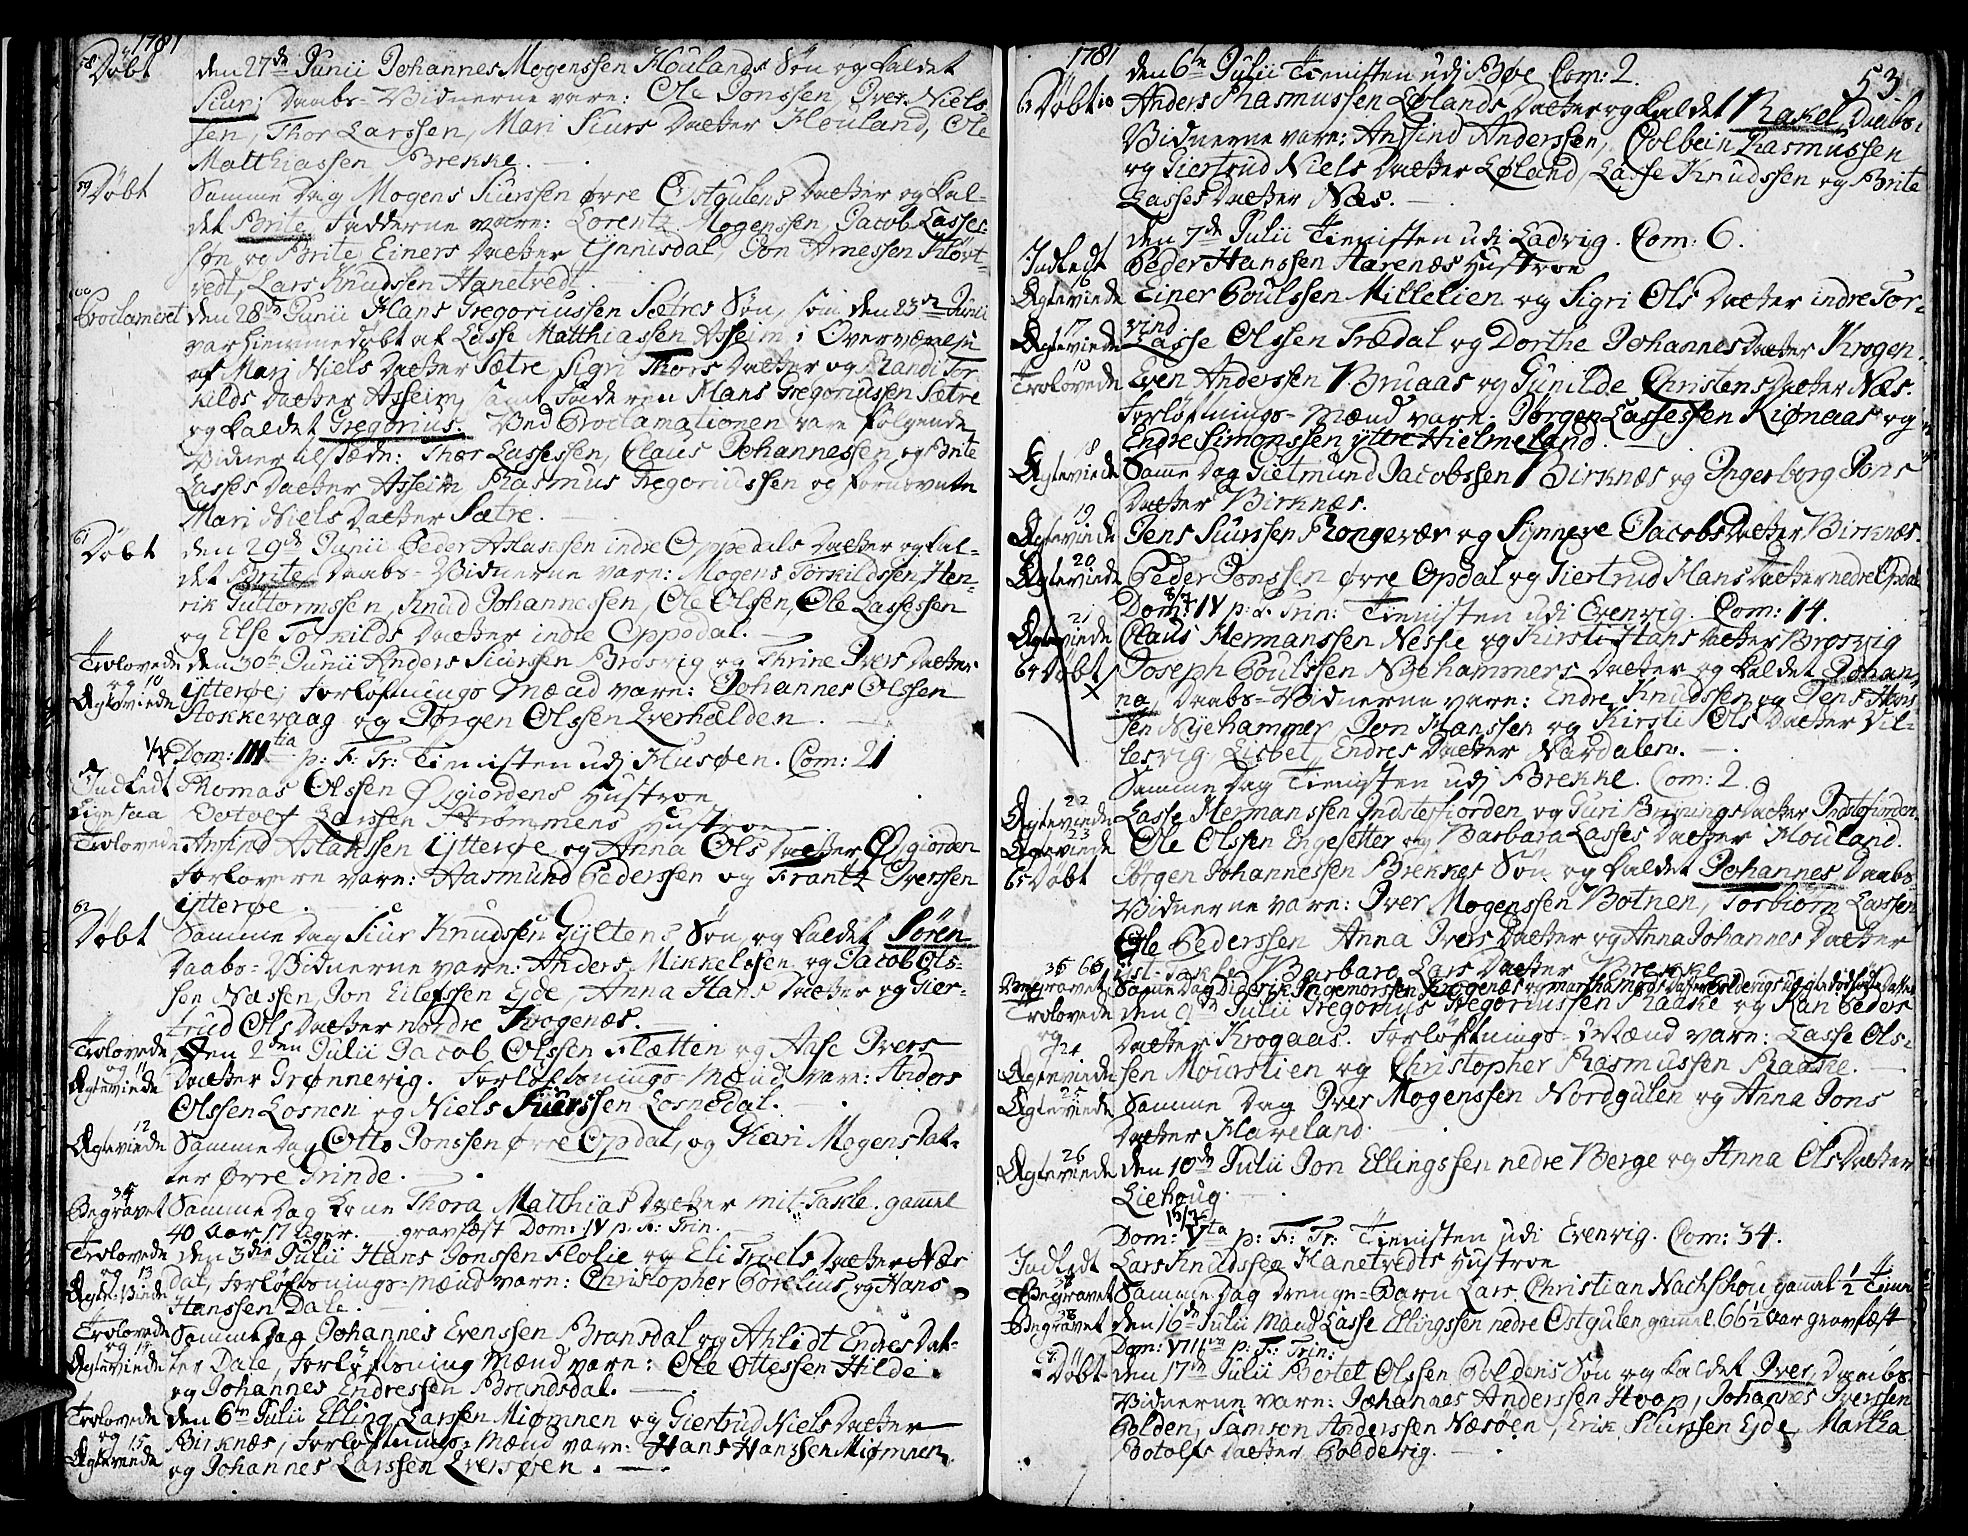 1781
58 Døbt den 27de Junii Johannes Mogenssen Houlands Søn og kaldet
Siur; Daabs-Vidnerne vare: Ole Jonssen, Iver Niels
sen, Thor Larssen, Mari Siurs Datter Houland, Ole
Matthiassen Brekke.
59 Døbt Samme Dag Mogens Siurssen øvre Østgulens Datter og kal-
det Brite. Fadderne vare: Lorentz Mogenssen, Jacob Lasses-
søn og Brite Einers Datter Ynnisdal, Jon Arnessen Kløvt-
vedt, Lars Knudssen Hanetvedt.
60
Proclameret den 28de Junii Hans Gregoriussen Sætres Søn, som den 23de Junii
var hiemmedøbt af Lasse Matthiassen Asseim i Overværelse
af Mari Niels Datter Sætre, Sigri Thors Datter og Randi Tor-
kilds Datter Asseim, samt Faderen Hans Gregoriussen Sætre
og kaldet Gregorius. Ved Proclamationen vare følgende
Vidner tilstæde: Thor Lassessen, Claus Johannessen og Brite
Lasses Datter Asseim Rasmus Gregoriussen og fornævnte
Mari Niels Datter Sætre.
61 Døbt den 29de Junii Peder Aslakssen indre Oppedals Datter og kal-
det Brite. Daabs-Vidnerne vare: Mogens Torkildssen, Hen-
rik Guttormssen, Knud Johannessen, Ole Olssen, Ole Lassessen
og Else Torkilds Datter indre Oppedal.
Trolovede den 30te Junii Anders Siurssen Brosvig og Thrine Ivers Datter
og 10
Ægteviede Ytterøe, Forløftnings Mænd vare: Johannes Olssen
Stokkevaag og Jørgen Olssen Everhalden.
1/7 Dom: III tia p: F: Tr: Tienisten udj Husøen. Com: 21
Indledt Thomas Olssen Øygiordens Hustroe
Ligesaa Botolf Larssen Strømmens Hustroe
Trolovede Anfind Aslakssen Ytterøe og Anna Ols Datter Øygiorden
Forlovere vare: Aasmund Pederssen og Frantz Iverssen
Ytterøe.
62
Døbt Samme Dag Siur Knudssen Gyltens Søn og kaldet Søren
Daabs-Vidnerne vare: Anders Mikkelssen og Jacob Ols-
sen Næssen, Jon Eilefssen Eide, Anna Hans Datter og Gier-
trud Ols Datter nordre Krogenæs.
Trolovede Den 2den Julii Jacob Olssen Flætten og Aase Ivers
og 11
Ægteviede Datter Grønnevig. Forløftnings-Mænd vare: Anders
Olssen Losnen og Niels Siurssen Losnedal.
12
Ægteviede Samme Dag Otto Jonssen øvre Opdal, og Kari Mogens Dat-
ter øvre Trinde.
35
Begravet Samme Dag Kone Thora Matthias Datter mit-Takle. gamel
40 Aar 17 Uger. gravfæst Dom: IV p. F. Trin.
Trolovede den 3die Julii Hans Jonssen Flolie og Eli Troels Datter Næs
og 13
Ægte-Viede dal, forløftnings-mænd vare: Christopher Borelius, og Hans
Hanssen Dale.
Trolovede Samme Dag Johannes Evenssen Bransdal og Ahlidt Endres Dat-
og 14
Ægteviede ter Dale, Forløftning Mænd vare: Ole Ottessen Hilde
og Johannes Endressen Brandsdal.
Trolovede den 6te Julii Elling Larssen Miømnen og Giertrud Niels Datter
og 15
Ægteviede Birknæs, Forløftnings-Mænd vare: Hans Hanssen Miømnen
og Johannes Larssen Eversøen.
1781
53.
den 6te Julii Tienisten udj Bøe Com: 2.
63 Døbt Anders Rasmussen Lølands Datter og kaldet Rakel, Daabs-
Vidnerne vare: Anfind Anderssen, Colbein Rasmussen
og Giertrud Niels Datter Løland, Lasse Knudssen og Brite
Lasses Datter Næs.
den 7de Julii Tienisten udi Ladvig. Com: 6.
Indledt Peder Hanssen Harenæs Hustroe
16
Ægteviede Einer Poulssen Millelien og Sigri Ols Datter indre Tor-
vind
17
Ægteviede Lasse Olssen Trædal og Dorthe Johannes Datter Krogen.
10
Trolovede Even Anderssen Bruaas og Gunilde Christens Datter Næs.
Forløftnings-Mænd vare: Jørgen Lassessen Kiønaas og
Endre Simonssen yttre Hielmeland.
8
Ægteviede Same Dag Gietmund Jacobssen Birknæs og Ingerborg Jons
Datter Birknæs.
19
Ægteviede Jens Siurssen Rongevær og Sinneve Jacobs Datter Birknæs.
20
Ægteviede Peder Jonssen øvre Opdal og Giertrud Hans Datter nedre Opdal
8/7
Dom: IV p: F. Trin: Tienisten udi Evenvig. Com: 14.
21
Ægteviede Claus Hermanssen Nesse og Kirsti Hans Datter Brosvig
64 Døbt Joseph Poulssen Nyehammers Datter og kaldet Johan-
na, Daabs-Vidnerne vare: Endre Knudssen og Jens Hans-
sen Nyehammer, Jon Hanssen og Kirsti Ols Datter Vil-
lesvig, Lisbet Endres Datter Nardalen.
Samme Dag Tienisten udj Brekke. Com: 2.
22
Ægteviede Lasse Hermanssen Indstefiorden og Guri Brynings Datter Indstefiorden
23
Ægteviede Ole Olssen Engesetter og Barbara Lasses Datter Houland.
65 Døbt Jørgen Johannessen Brekkes Søn og kaldet Johannes Daabs-
Vidnerne vare: Iver Mogenssen Botnen, Torbiørn Larssen
Ole Pederssen Anna Ivers Datter og Anna Johannes Datter
Barbara Lars Datter Brekke.
36 66
Begravet Samme Dag Diderik Ingemorssen Krogenæs
Trolovede den 9de Julii Gregorius Gregoriussen Raaske og Kari Peders
og
24 Datter Krogaas. Forløftnings-Mænd vare: Lasse Ols-
Ægteviede sen Mourstien og Christopher Rasmussen Raaske.
25
Ægteviede Samme Dag Iver Mogenssen Nordgulen og Anna Jons
Datter Haveland.
26
Ægteviede den 10de Julii Jon Ellingssen nedre Berge og Anna Ols Datter
Liehoug.
15/7
Dom: V ta p: F: Tr: Tienisten udi Evenvig. Com: 34.
Indledt Lars Knudssen Hanetvedts Hustroe
Begravet Samme Dag Drenge-Barn Lars Christian Nachskou gamel 1/2 Time
38
Begravet den 16de Julii Mand Lasse Ellingssen nedre Østgulen gamel. 66 1/2 Aar gravfæst
Dom: p. F: Trin:
Døbt den 17de Julii Botel Olssen Poldens Søn og kaldet Iver, Daabs-
Vidnerne vare: Johannes Anderssen Hoop, Johannes Iverssen
Polden, Samson Anderssen Næsøen, Erik Siurssen Eide, Martha
Botolfs Datter Poldevig.